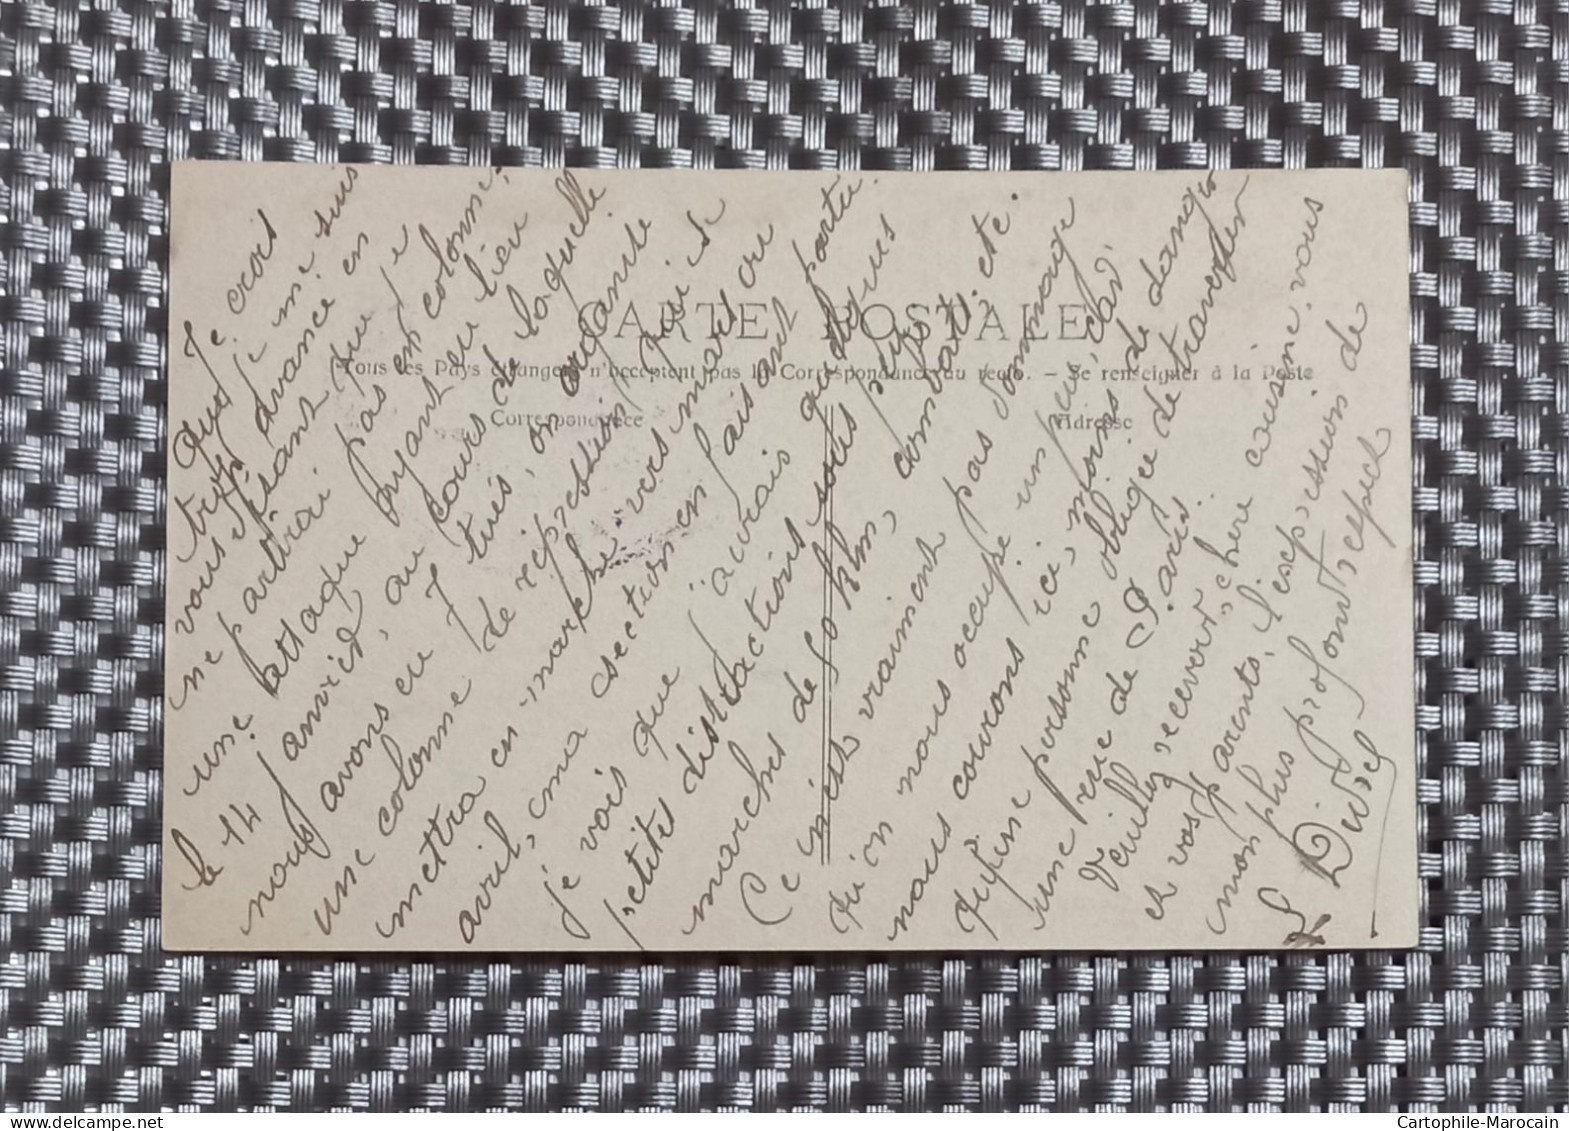 CARTE POSTALE
Tous les Pays étrangers n'acceptent pas la Correspondance au recto. - Se renseigner à la Poste
Correspondance
Adresse
Je crois
que je me suis
trop avancé en
vous disant que je
ne partirai pas en colonne,
une attaque ayant eu lieu
le 14 janvier, au cours de laquelle
nous avons eu 7 tués, on organise
une colonne de répression qui se
mettra en marche vers mars ou
avril, ma section en faisant partie
je vois que j'aurais quelques
petites distractions sous peu
marches de 50 klm, combats. etc.
Ce n'est vraiment pas dommage
qu'on nous occupe un peu, car
nous courons ici, moins de danger
qu'une personne obligée de traverser
une rue de Paris.
Veuillez recevoir, chère cousine, vous
et vos parents, l'expression de
mon plus profond respect